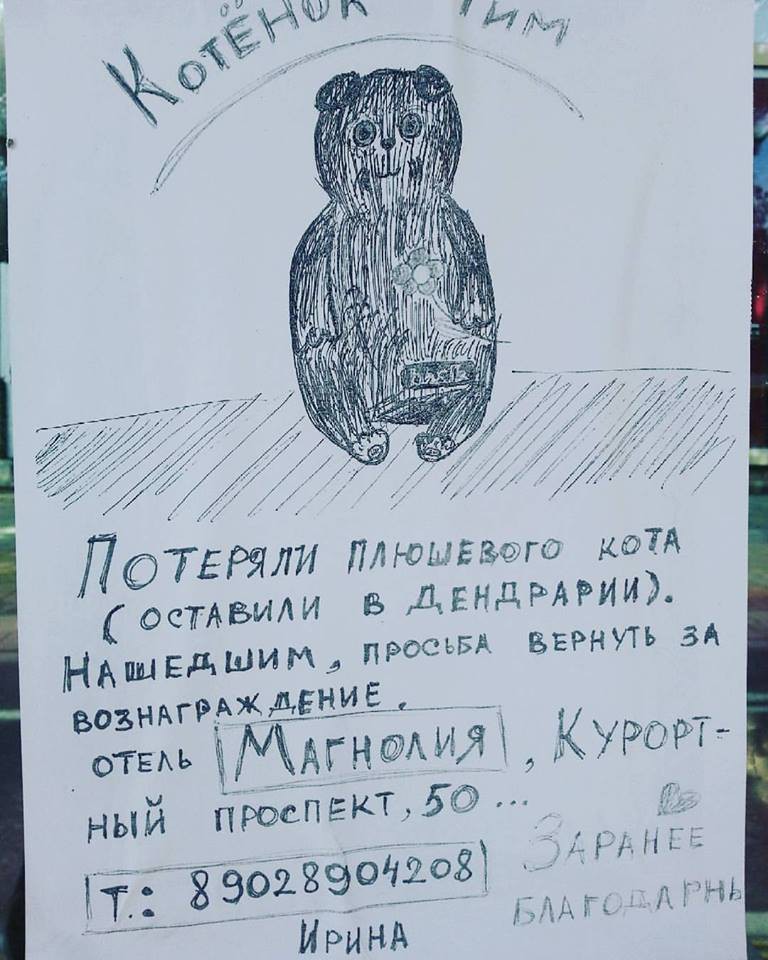 Котёнок Тим
Потеряли плюшевого кота
(оставили в Дендрарии).
Нашедшим, просьба вернуть за
вознаграждение.
отель Магнолия, Курорт-
ный проспект, 50...
Заранее
т.: 89028904208
благодарны
Ирина